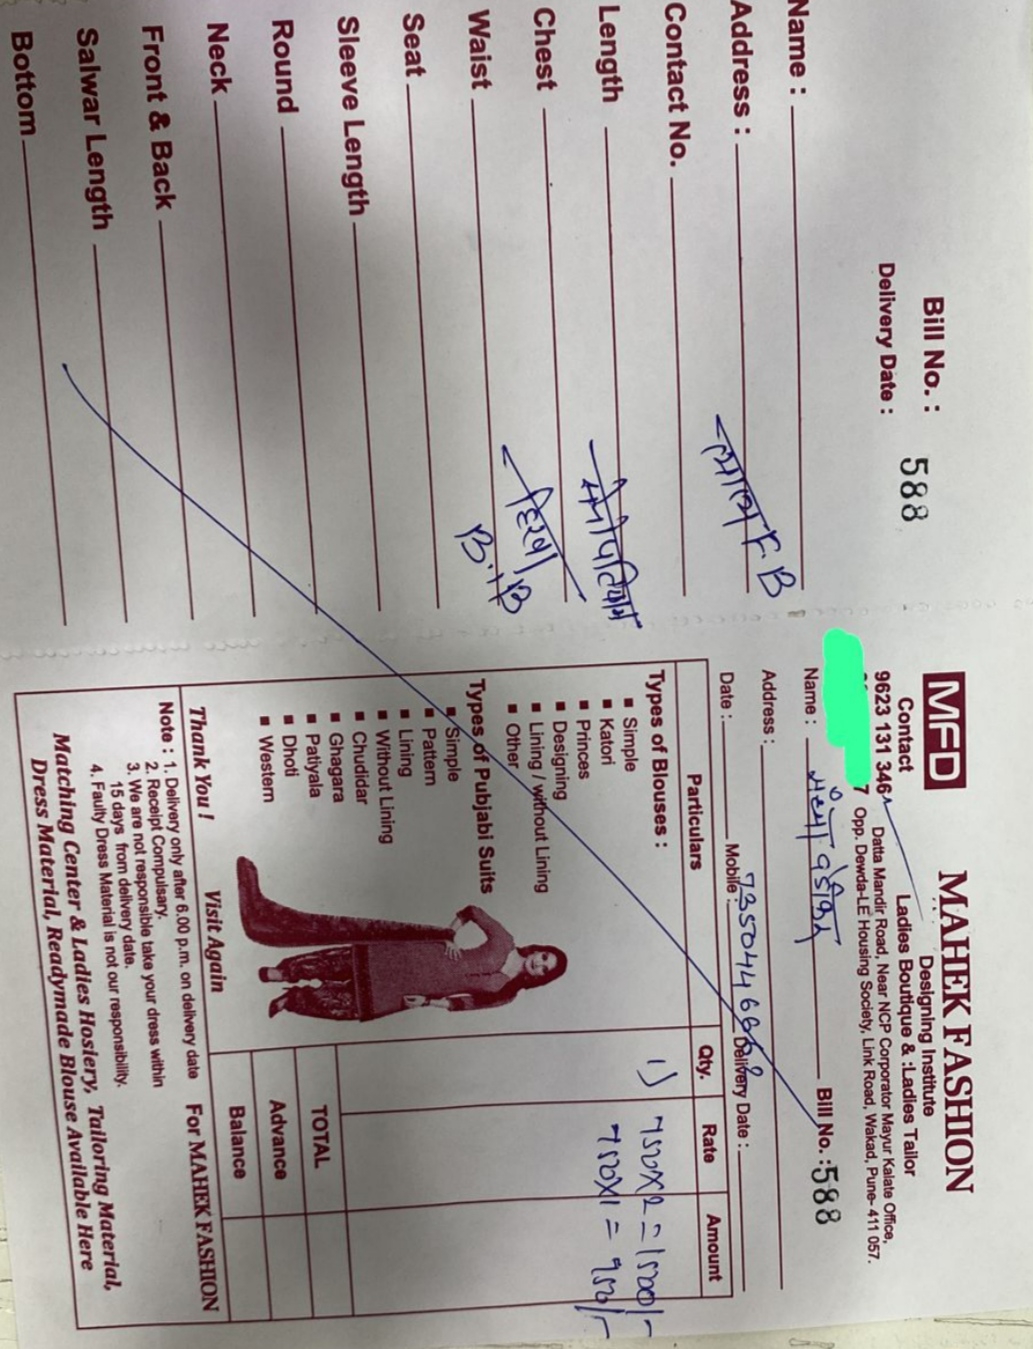 Bill No. : 588
Delivery Date :
Name :
Address :
F B
Contact No.
Length
Chest
Waist
B.
Seat
Sleeve Length
Round
Neck
Front & Back
Salwar Length
Bottom
MFD
MAHEK FASHION
Designing Institute
Contact
Ladies Boutique & :Ladies Tailor
9623 131 346
Datta Mandir Road, Near NCP Corporator Mayur Kalate Office,
7 Opp. Dewda-LE Housing Society, Link Road, Wakad, Pune- 411 057.
Name :
Bill No. :588
Address :
Date : Mobile Delivery Date :
Particulars Qty. Rate Amount
Types of Blouses :
1) 750X2 = 1500/-
▪ Simple
▪ Katori
▪ Princes
▪ Designing
▪ Lining / without Lining
▪ Other
Types of Pubjabi Suits
▪ Simple
▪ Pattern
▪ Lining
▪ Without Lining
▪ Chudidar
▪ Ghagara
▪ Patiyala
▪ Dhoti
▪ Western
TOTAL
Advance
Balance
Thank You ! Visit Again For MAHEK FASHION
Note : 1. Delivery only after 6.00 p.m. on delivery date
2. Receipt Compulsary.
3. We are not responsible take your dress within
15 days from delivery date.
4. Faulty Dress Material is not our responsibility.
Matching Center & Ladies Hosiery, Tailoring Material,
Dress Material, Readymade Blouse Available Here